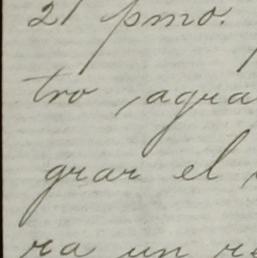 21 pmo.
tro, agra
grar el
ra un re